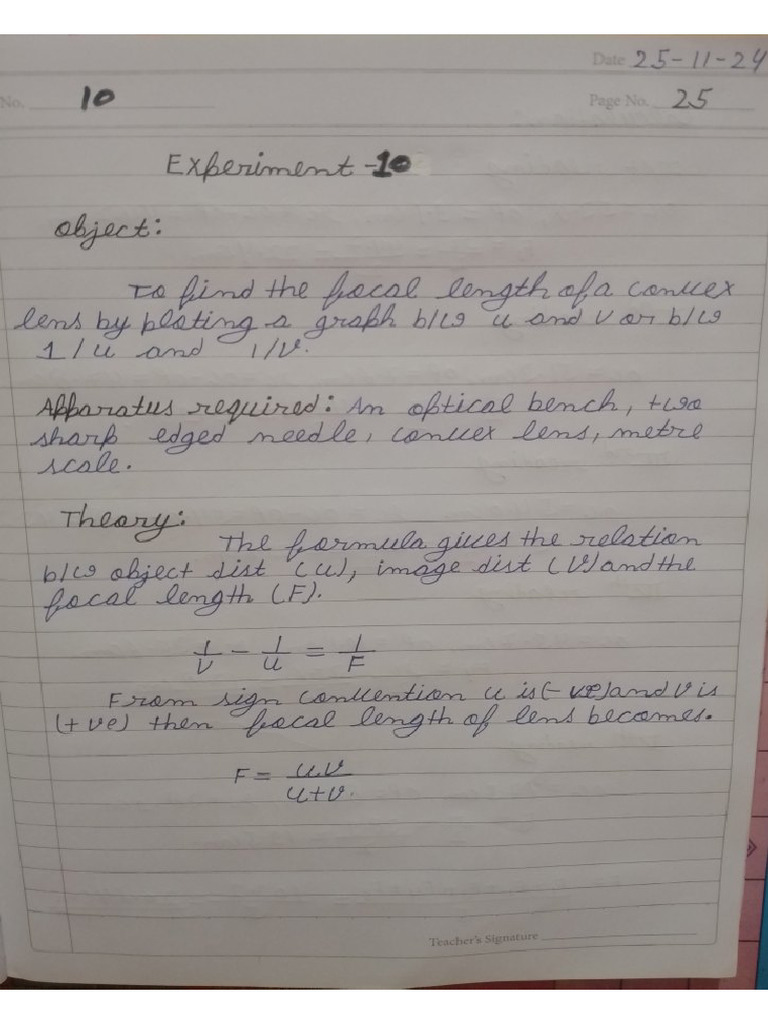 Date 25-11-24
No. 10
Page No. 25
Experiment -10
Object:
To find the focal length of a convex
lens by ploting a graph b/w u and v or b/w
1/u and 1/v.
Apparatus required: An optical bench, two
sharp edged needle, convex lens, metre
scale.
Theory:
The formula gives the relation
b/w object dist (u), image dist (v) and the
focal length (F).
1/v - 1/u = 1/F
From sign convention u is (- ve) and v is
(+ ve) then focal length of lens becomes.
F = uv/u+v.
Teacher's Signature